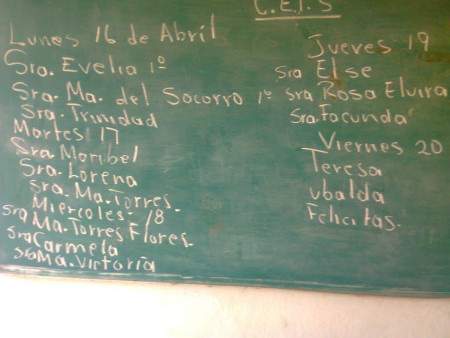 C.E.I.S
Lunes 16 de Abril
Sra. Evelia 1º
Sra. Ma. del Socorro 1º
Sra. Trinidad
Martes 17
Sra Maribel
Sra. Lorena
Sra. Ma. Torres.
Miercoles. 18
Sra Ma. Torres Flores.
Sra Carmela
Sra Ma. Victoria
Jueves 19
Sra Else
Sra Rosa Elvira
Sra. Facunda
Viernes 20
Teresa
Ubalda
Felicitas.